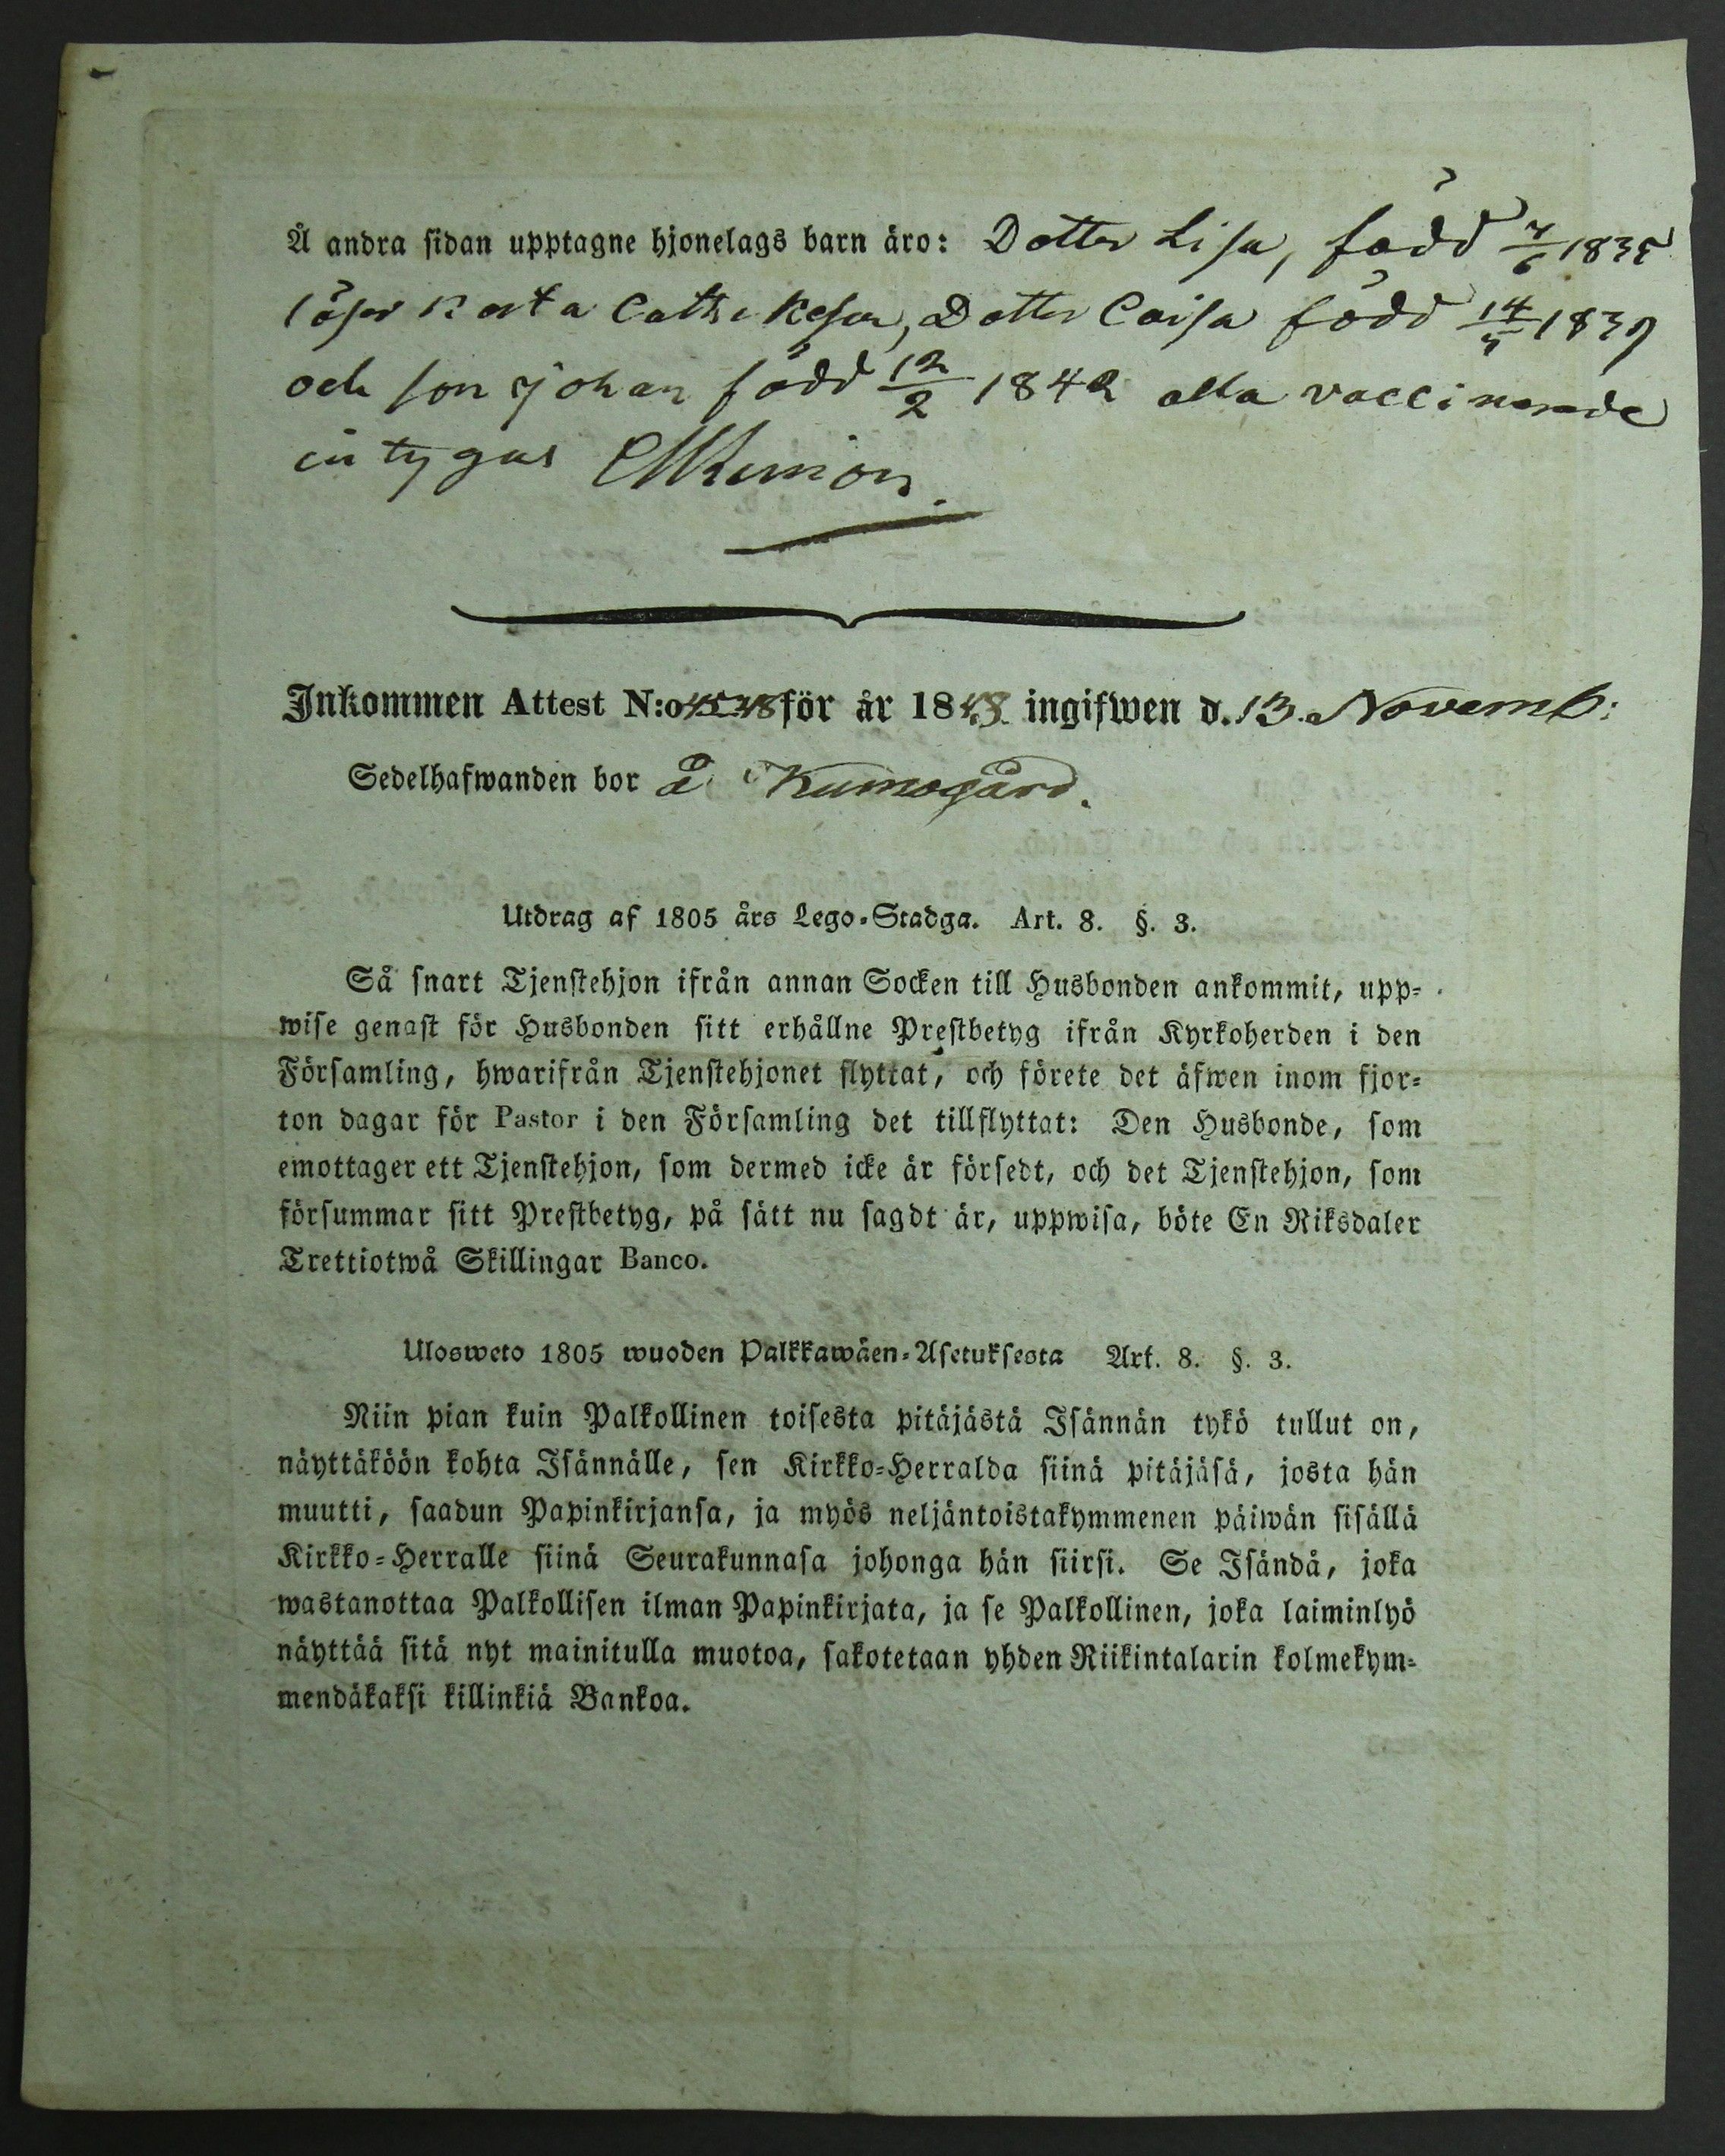 Å andra sidan upptagne hjonelags barn äro: Dotter Lisa, född 7/6 1835
läser korta Cathekesen, Dotter Caisa född 14/4 1839
och son Johan född 12/2 1842 alla vaccinerade
intygas
Inkommen Attest N:o för år 1848 ingifwen d. 13. Novemb:
Sedelhafwanden bor å Kumogård.
Utdrag af 1805 års Lego-Stadga. Art. 8. §. 3.
Så snart Tjenstehjon ifrån annan Socken till Husbonden ankommit, upp-
wise genast för Husbonden sitt erhållne Prestbetyg ifrån Kyrkoherden i den
Församling, hwarifrån Tjenstehjonet flyttat, och förete det äfwen inom fjor-
ton dagar för Pastor i den Församling det tillflyttat: Den Husbonde, som
emottager ett Tjenstehjon, som dermed icke är försedt, och det Tjenstehjon, som
försummar sitt Prestbetyg, på sätt nu sagdt är, uppwisa, böte En Riksdaler
Trettiotwå Skillingar Banco.
Ulosweto 1805 wuoden Palkkawäen-Asetuksesta Art. 8. §. 3.
Niin pian kuin Palkollinen toisesta pitäjästä Isännän tykö tullut on,
näyttäköön kohta Isännälle, sen Kirkko-Herralda siinä pitäjäsä, josta hän
muutti, saadun Papinkirjansa, ja myös neljäntoistakymmenen päiwän sisällä
Kirkko-Herralle siinä Seurakunnasa johonga hän siirsi. Se Isändä, joka
wastanottaa Palkollisen ilman Papinkirjata, ja se Palkollinen, joka laiminlyö
näyttää sitä nyt mainitulla muotoa, sakotetaan yhden Riikintalarin kolmekym-
mendäkaksi killinkiä Bankoa.